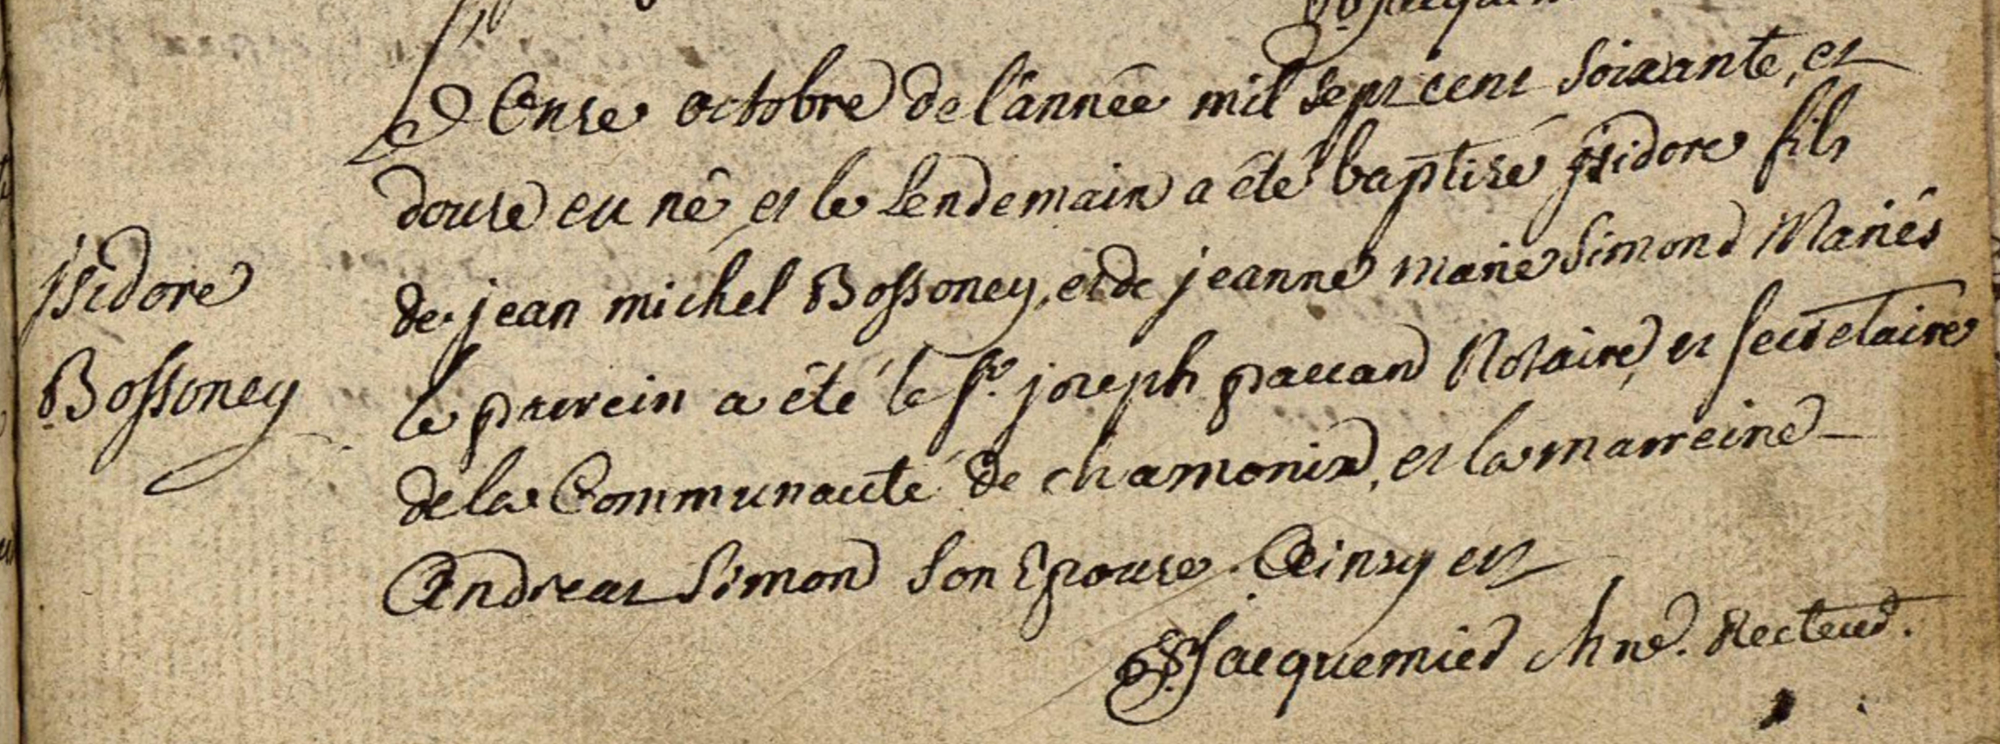 Onse octobre de l'année mil sept cent soixante, et
douse est né, et le lendemain a été baptisé jsidore fils
de jean michel Bossoney, et de jeanne marie Simond Mariés
le parrein a été le Sr. joseph paccard Notaire, et secretaire
de la Communauté de chamonix, et la marreine
Andreas Simond son Epouse. Ainsy est
Jacquemier Chne. Recteur.
jsidore
Bossoney